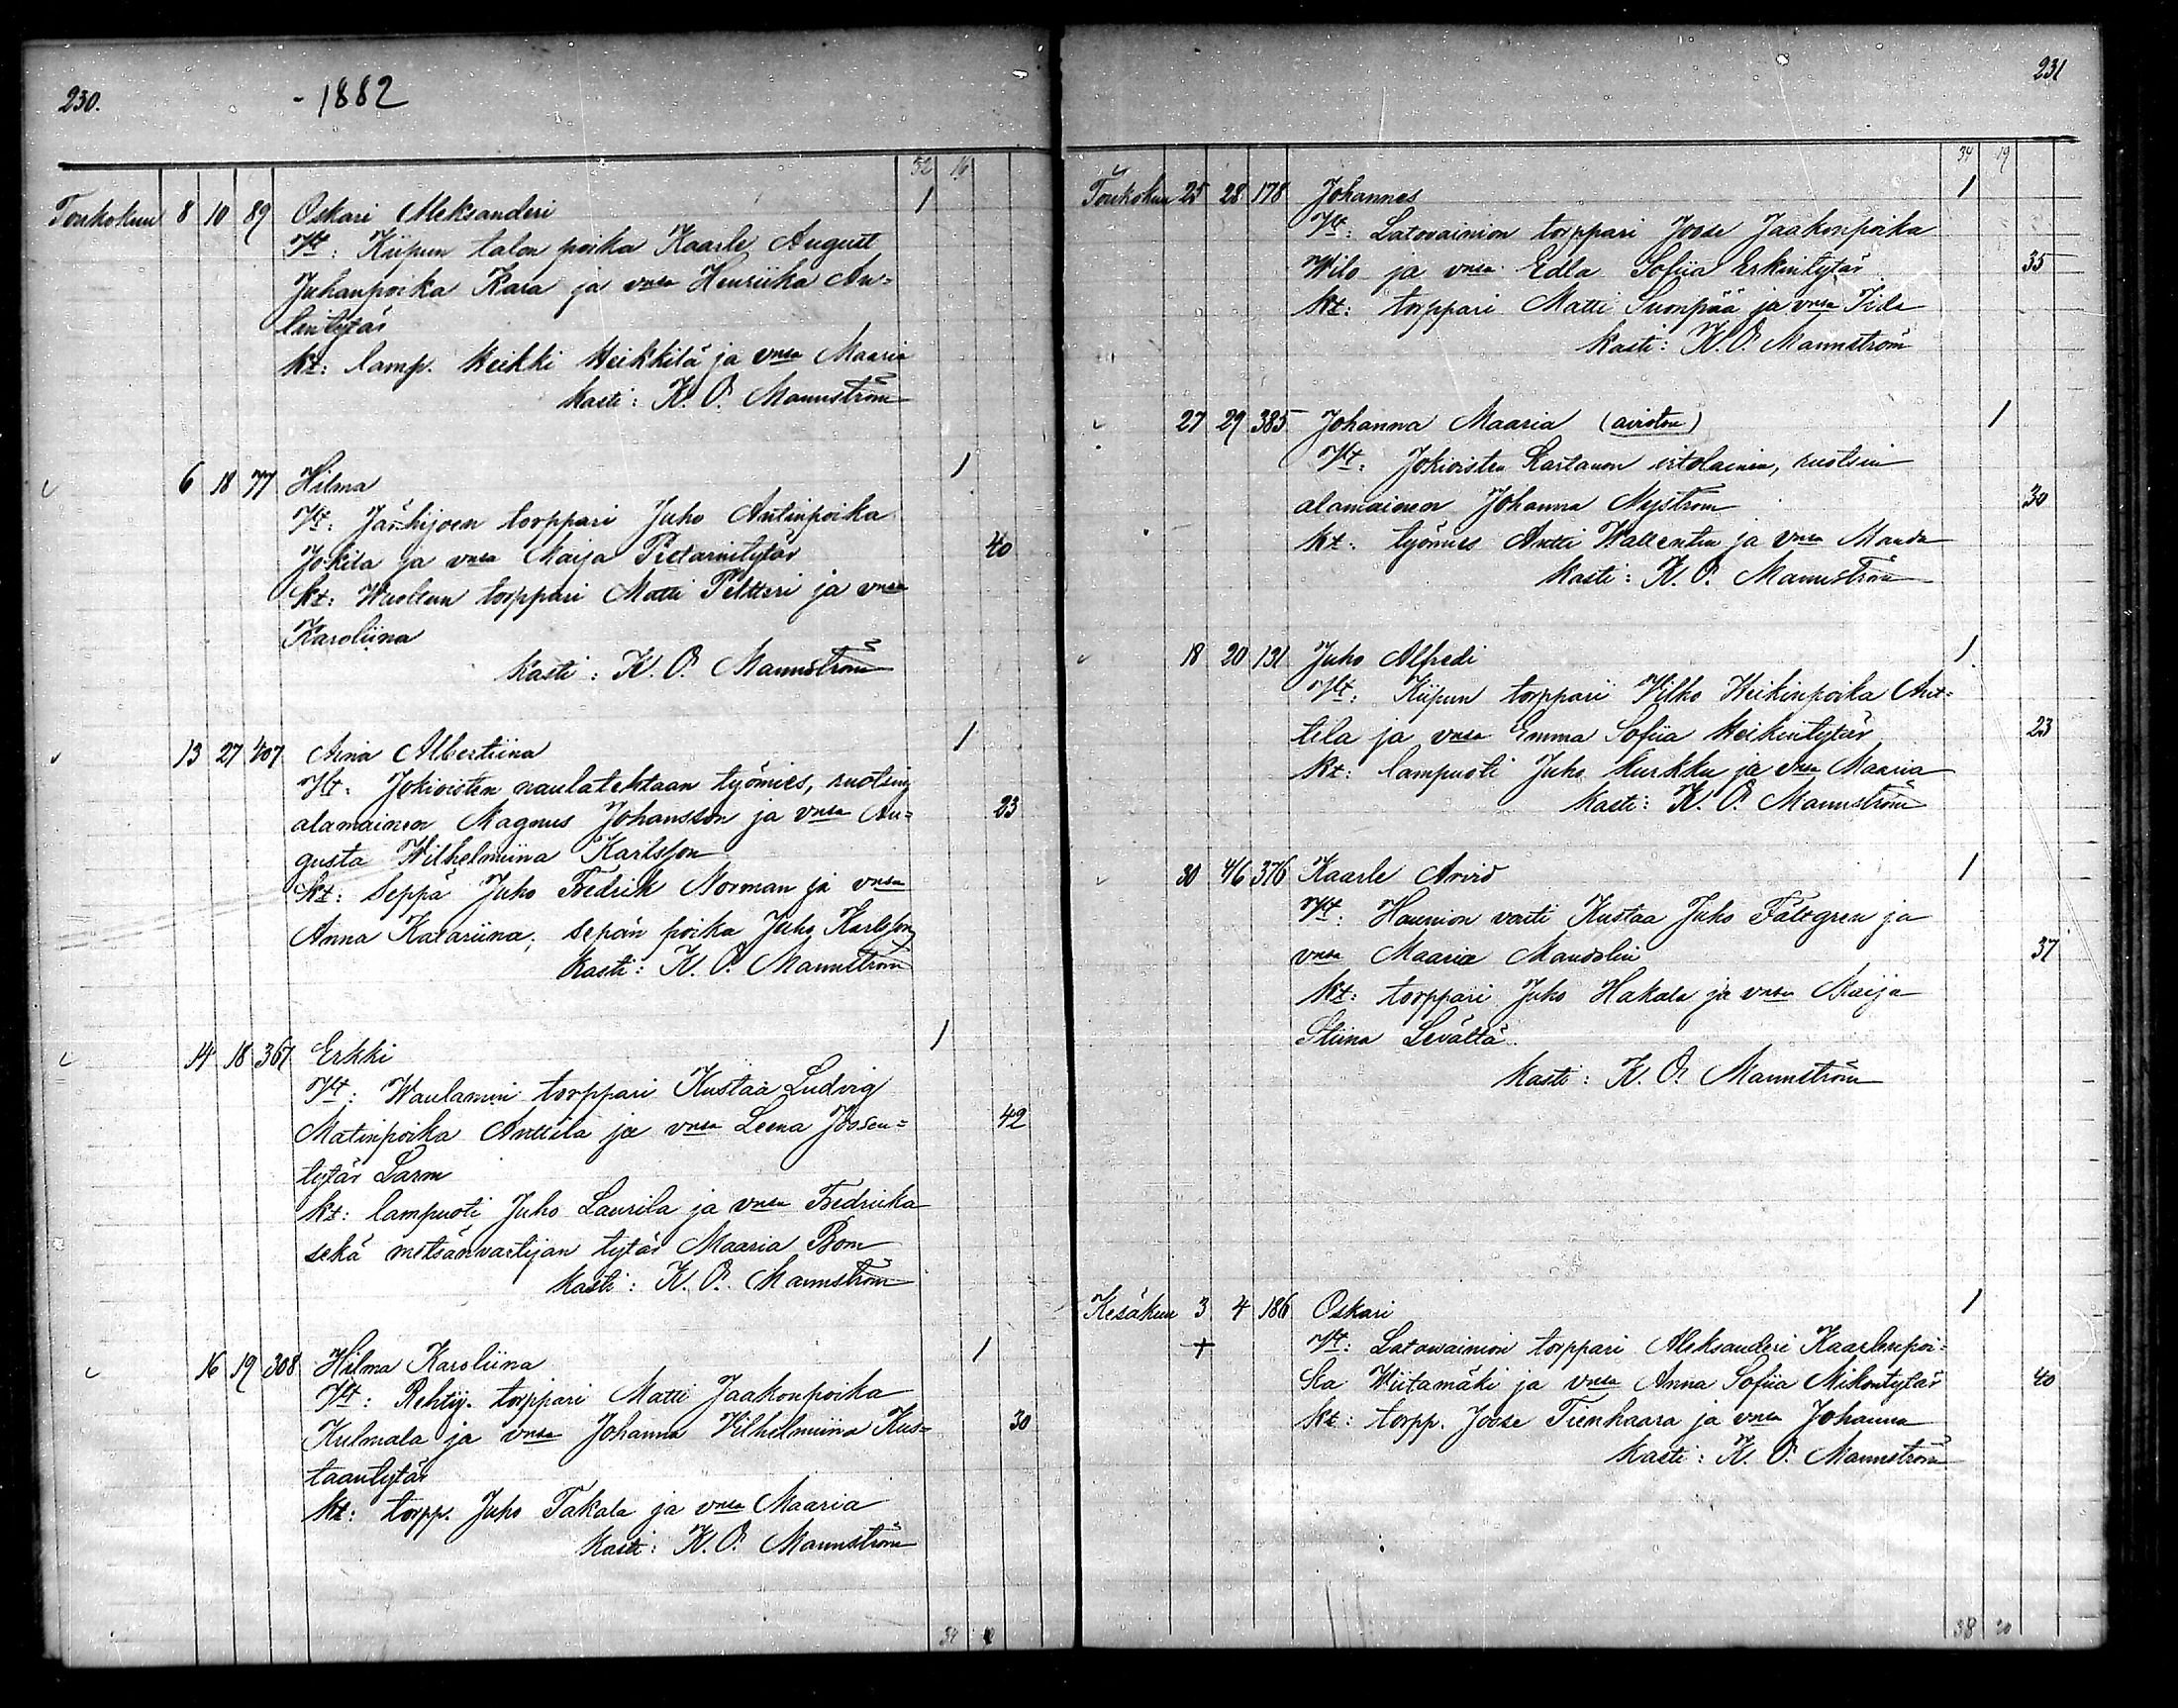 230.
- 1882
52 16
Toukokuu 8 10 89 Oskari Aleksanderi 1
Vt: Kiipun talon poika Kaarle August
Juhanpoika Kara ja vmsa Henriika An=
tintytär
kt: lamp. Heikki Heikkilä ja vmsa Maaria
kasti: K. O. Mannström
6 18 77 Hilma 1
Vt: Järhijoen torppari Juho Antinpoika
Jokila ja vmsa Maija Pietarintytär 40
kt: torppari Matti Peltteri ja vmsa
Karoliina
kasti: K. O. Mannström
13 27 407 Aina Albertiina 1
Vt: Jokioisten naulatehtaan työmies, ruotsin
alamainen Magnus Johansson ja vmsa Au= 23
gusta Wilhelmiina Karlsson
kt: Seppä Juho Fredrik Norman ja vmsa
Anna Katariina; sepän poika Juho Karlsson
kasti: K. O. Mannström
14 18 367 Erkki 1
Vt: Waulamin torppari Kustaa Ludvig
Matinpoika Anttila ja vmsa Leena Joosen= 42
tytär Larm
kt: lampuoti Juho Laurila ja vmsa Fredriika
sekä metsänvartijan tytär Maaria Bom
kasti: K. O. Mannström
16 19 308 Hilma Karoliina 1
Vt: Rehtij. torppari Matti Jaakonpoika
Kulmala ja vmsa Johanna Vilhelmiina Kus= 30
taantytär
kt: torpp. Juho Takala ja vmsa Maaria
kasti: K. O. Mannström
34
231
34 19
Toukokuu 25 28 178 Johannes 1
Vt: Latovainion torppari Joose Jaakonpoika
Wilo ja vmsa Edla Sofiia Erkintytär 35
kt: torppari Matti Suonpää ja vmsa Iida
kasti: K. O. Mannström
27 29 385 Johanna Maaria (avioton) 1
Vt: Jokioisten Kartanon irtolainen, ruotsin
alamainen Johanna Nyström 30
kt: työmies Antti Wallentin ja vmsa Manda
kasti: K. O. Mannström
18 20 131 Juho Alfredi 1
Vt: Kiipun torppari Vilho Heikinpoika Ant=
tila ja vmsa Emma Sofiia Heikintytär 23
kt: lampuoti Juho Kurkku ja vmsa Maaria
kasti: K. O. Mannström
30 46 376 Kaarle Arvid 1
Vt: Haunion vasti Kustaa Juho Fältgren ja
vmsa Maaria Mandolin 37
kt: torppari Juho Hakala ja vmsa Maija
Stiina Levältä
kasti: K. O. Mannström
Kesäkuu 3 4 186 Oskari 1
+ Vt: Latovainion torppari Aleksanderi Kaarlenpoi=
ka Wiitamäki ja vmsa Anna Sofiia Mikontytär 40
kt: torpp. Joose Tienhaara ja vmsa Johanna
kasti: K. O. Mannström
38 20